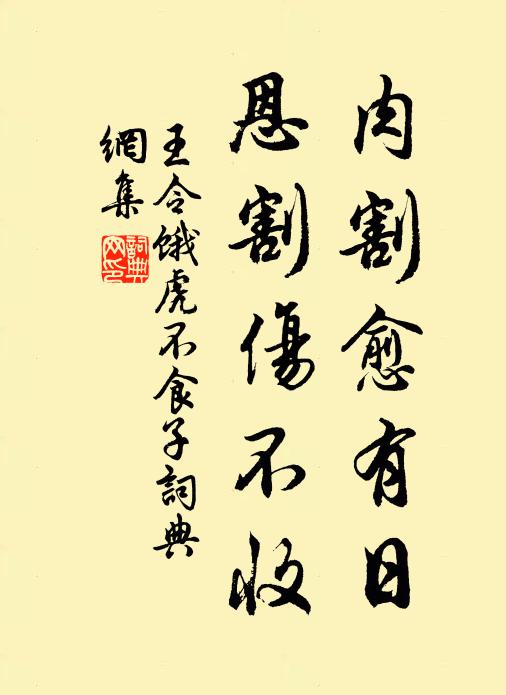 肉割愈有日
恩割傷不收
王令餓虎不食子詞典
網集
詞典
网印